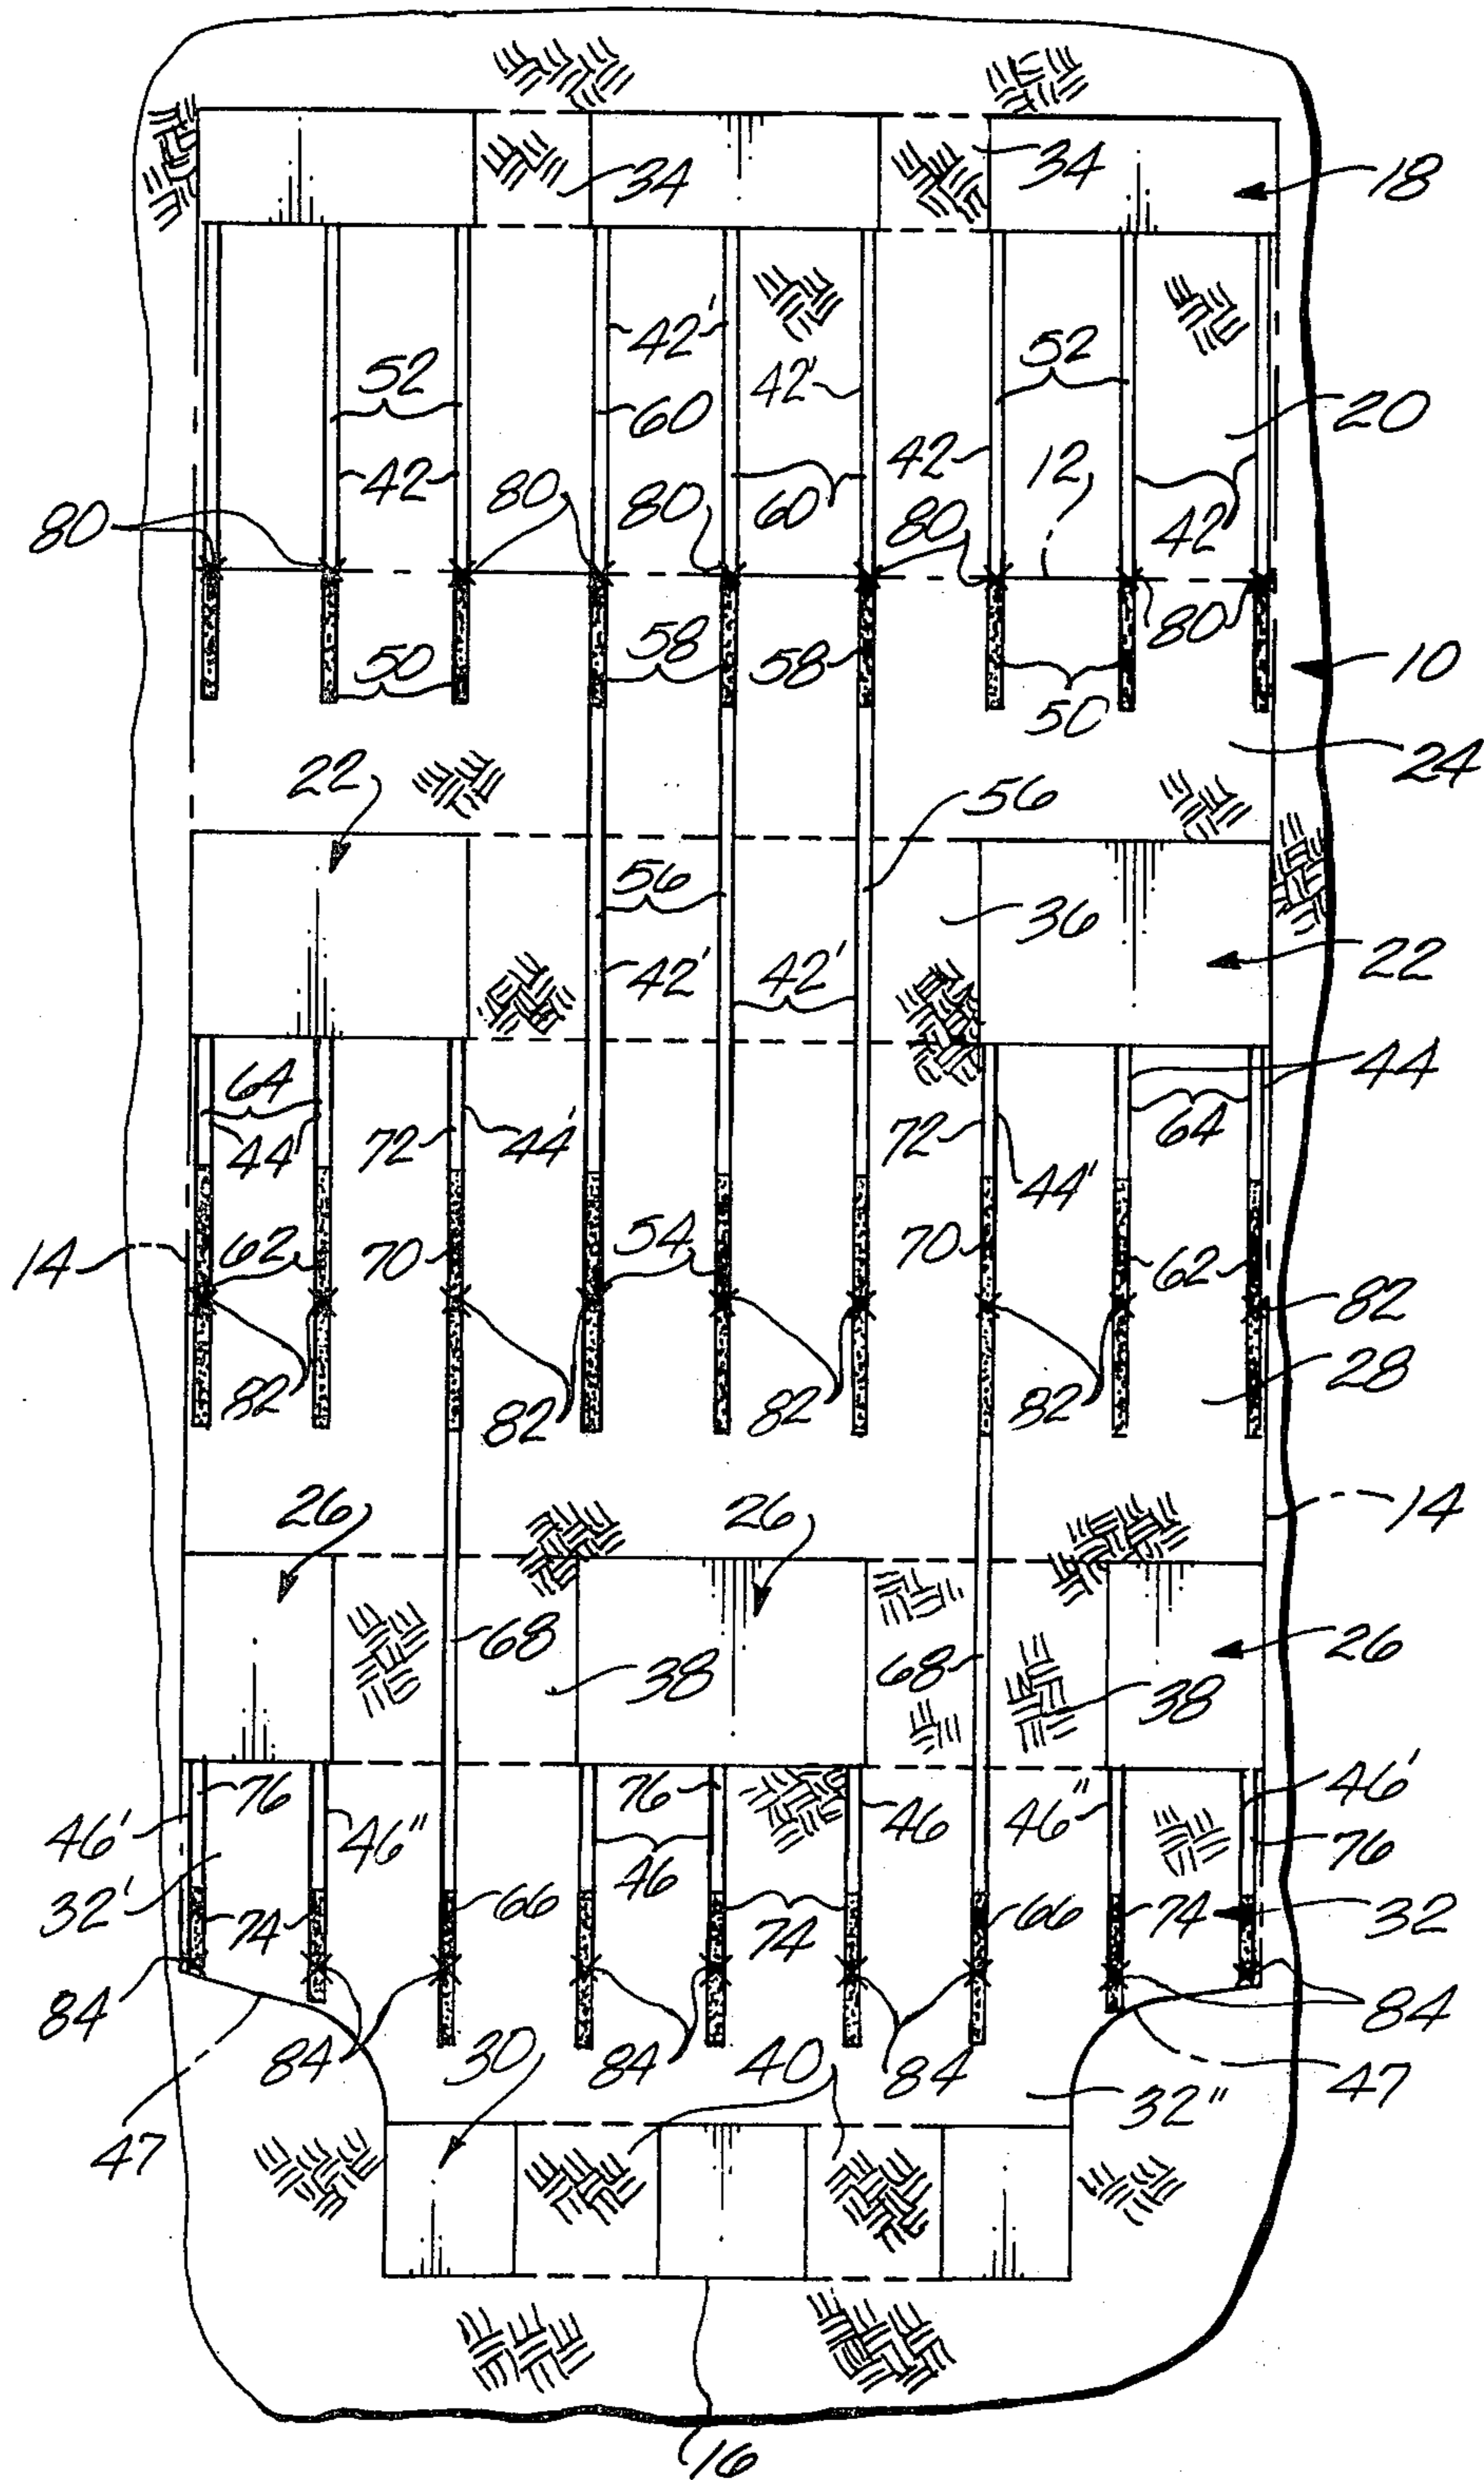 34 34 18
42' 42' 52 52 20
60 42 12
42 80 80 60 80 42
80
50 58 58 50 80 10
24
22 56
56 36 22
42' 42'
64 72 44' 72 44' 64 44
44
14 62 70 54 70 62 82
82 82 82 82 28
26 26 14
68 38 68 38 26
46' 76 46" 76 46 46" 46' 76
46
32' 74 66 74 66 74 32
84 84 30 84 40 84 84
47 32" 47
16
10